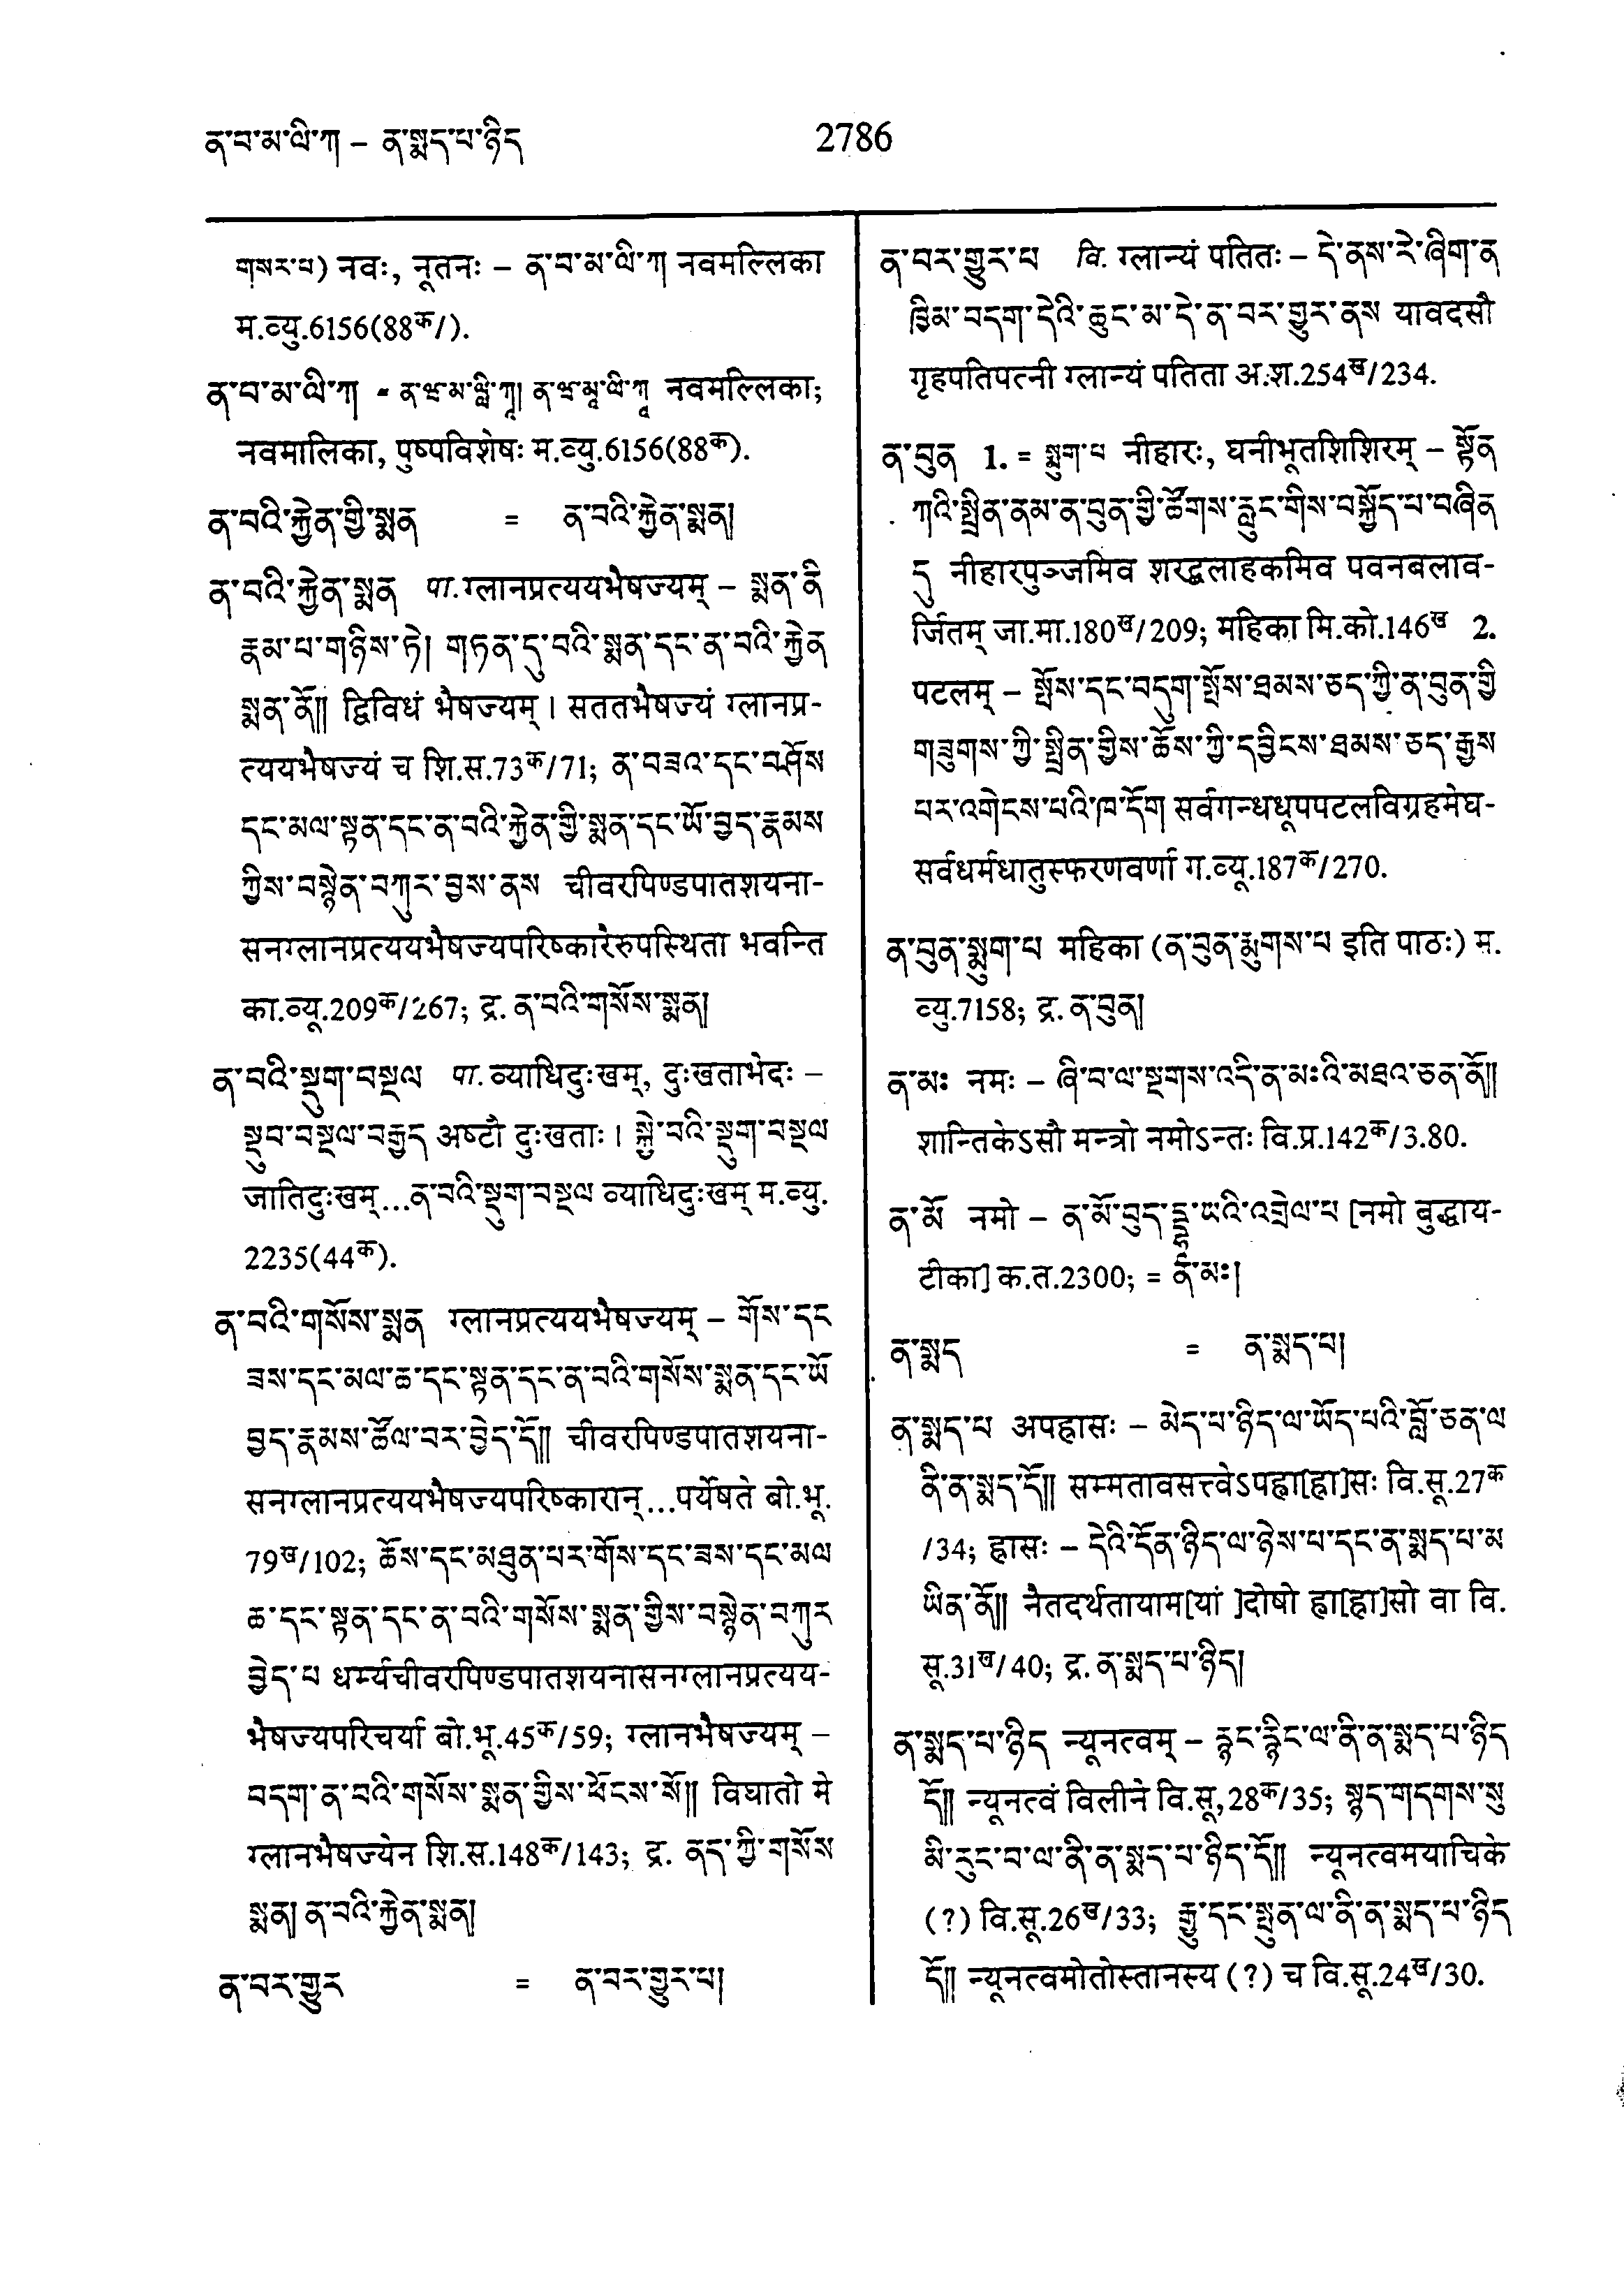 ན་བ་མ་ལི་ཀ – ན་སྨད་པ་ཉིད
2786
གསར་པ) नवः, नूतनः – ན་བ་མ་ལི་ཀ नवमल्लिका
म.व्यु.6156(88क/).
ན་བ་མ་ལི་ཀ = ན་ཝ་མ་ལླི་ཀཱ། ན་ཝ་མཱ་ལི་ཀཱ नवमल्लिका;
नवमालिका, पुष्पविशेषः म.व्यु.6156(88क).
ན་བའི་རྐྱེན་གྱི་སྨན = ན་བའི་རྐྱེན་སྨན།
ན་བའི་རྐྱེན་སྨན पा. ग्लानप्रत्ययभैषज्यम् – སྨན་ནི
རྣམ་པ་གཉིས་ཏེ། གཏན་དུ་བའི་སྨན་དང་ན་བའི་རྐྱེན
སྨན་ནོ།། द्विविधं भैषज्यम् । सततभैषज्यं ग्लानप्र-
त्ययभैषज्यं च शि.स.73क/71; ན་བཟའ་དང་བཤོས
དང་མལ་སྟན་དང་ན་བའི་རྐྱེན་གྱི་སྨན་དང་ཡོ་བྱད་རྣམས
ཀྱིས་བསྙེན་བཀུར་བྱས་ནས चीवरपिण्डपातशयना-
सनग्लानप्रत्ययभैषज्यपरिष्कारैरुपस्थिता भवन्ति
का.व्यू.209क/267; द्र. ན་བའི་གསོས་སྨན།
ན་བའི་སྡུག་བསྔལ पा. व्याधिदुःखम्, दुःखताभेदः –
སྡུབ་བསྔལ་བརྒྱད अष्टौ दुःखताः । སྐྱེ་བའི་སྡུག་བསྔལ
जातिदुःखम्...ན་བའི་སྡུག་བསྔལ व्याधिदुःखम् म.व्यु.
2235(44क).
ན་བའི་གསོས་སྨན ग्लानप्रत्ययभैषज्यम् – གོས་དང
ཟས་དང་མལ་ཆ་དང་སྟན་དང་ན་བའི་གསོས་སྨན་དང་ཡོ
བྱད་རྣམས་ཚོལ་བར་བྱེད་དོ།། चीवरपिण्डपातशयना-
सनग्लानप्रत्ययभैषज्यपरिष्कारान्...पर्येषते बो.भू.
79ख/102; ཆོས་དང་མཐུན་པར་གོས་དང་ཟས་དང་མལ
ཆ་དང་སྟན་དང་ན་བའི་གསོས་སྨན་གྱིས་བསྙེན་བཀུར
བྱེད་པ धर्म्यचीवरपिण्डपातशयनासनग्लानप्रत्यय-
भैषज्यपरिचर्या बो.भू.45क/59; ग्लानभैषज्यम् –
བདག་ན་བའི་གསོས་སྨན་གྱིས་ཕོངས་སོ།། विघातो मे
ग्लानभैषज्येन शि.स.148क/143; द्र. ནད་ཀྱི་གསོས
སྨན། ན་བའི་རྐྱེན་སྨན།
ན་བར་གྱུར = ན་བར་གྱུར་པ།
ན་བར་གྱུར་པ वि. ग्लान्यं पतितः – དེ་ནས་རེ་ཞིག་ན
ཁྱིམ་བདག་དེའི་ཆུང་མ་དེ་ན་བར་གྱུར་ནས यावदसौ
गृहपतिपत्नी ग्लान्यं पतिता अ.श.254ख/234.
ན་བུན 1. = སྨུག་པ नीहारः, घनीभूतशिशिरम् – སྟོན
ཀའི་སྤྲིན་ནམ་ན་བུན་གྱི་ཚོགས་རླུང་གིས་བསྐྱོད་པ་བཞིན
དུ नीहारपुञ्जमिव शरद्बलाहकमिव पवनबलाव-
र्जितम् जा.मा.180ख/209; महिका मि.को.146ख 2.
पटलम् – སྤོས་དང་བདུག་སྤོས་ཐམས་ཅད་ཀྱི་ན་བུན་གྱི
གཟུགས་ཀྱི་སྤྲིན་གྱིས་ཆོས་ཀྱི་དབྱིངས་ཐམས་ཅད་རྒྱས
པར་འགེངས་པའི་ཁ་དོག सर्वगन्धधूपपटलविग्रहमेघ-
सर्वधर्मधातुस्फरणवर्णा ग.व्यू.187क/270.
ན་བུན་སྨུག་པ महिका (ན་བུན་རྨུགས་པ इति पाठः) म.
व्यु.7158; द्र. ན་བུན།
ན་མཿ नमः – ཞི་བ་ལ་སྔགས་འདི་ན་མཿའི་མཐའ་ཅན་ནོ།།
शान्तिकेऽसौ मन्त्रो नमोऽन्तः वि.प्र.142क/3.80.
ན་མོ नमो – ན་མོ་བུད་དྷཱ་ཡའི་འགྲེལ་པ [नमो बुद्धाय-
टीका] क.त.2300; = ན་མཿ།
ན་སྨད = ན་སྨད་པ།
ན་སྨད་པ अपह्रासः – མེད་པ་ཉིད་ལ་ཡོད་པའི་བློ་ཅན་ལ
ནི་ན་སྨད་དོ།། सम्मतावसत्त्वेऽपह्वा[ह्रा]सः वि.सू.27क
/34; ह्रासः – དེའི་དོན་ཉིད་ལ་ཉེས་པ་དང་ན་སྨད་པ་མ
ཡིན་ནོ།། नैतदर्थतायाम[यां ]दोषो ह्वा[ह्रा]सो वा वि.
सू.31ख/40; द्र. ན་སྨད་པ་ཉིད།
ན་སྨད་པ་ཉིད न्यूनत्वम् – རྙང་རྙིང་ལ་ནི་ན་སྨད་པ་ཉིད
དོ།། न्यूनत्वं विलीने वि.सू,28क/35; སྙད་གདགས་སུ
མི་རུང་བ་ལ་ནི་ན་སྨད་པ་ཉིད་དོ།། न्यूनत्वमयाचिके
(?) वि.सू.26ख/33; རྒྱུ་དང་སྤུན་ལ་ནི་ན་སྨད་པ་ཉིད
དོ།། न्यूनत्वमोतोस्तानस्य (?) च वि.सू.24ख/30.